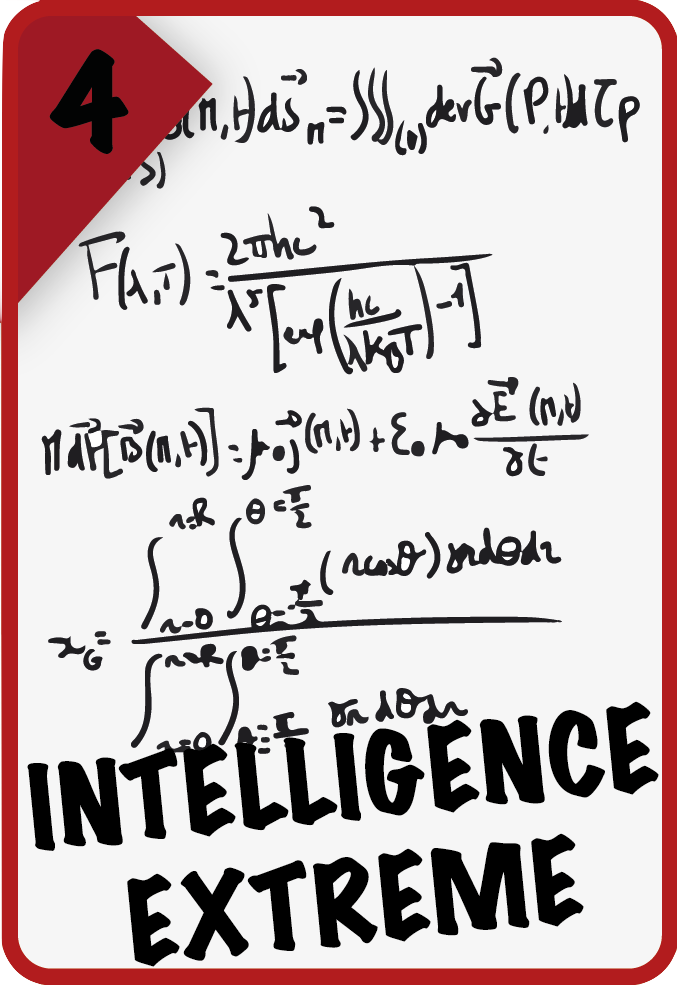 4
(M,t)dS⃗ₘ = ∭₍ᵥ₎ div G⃗(P,t)dτₚ
S)
F(λ,T) = 2πhc² / λ⁵[exp(hc/λk_BT)-1]
rot[B⃗(M,t)] = μ₀j⃗(M,t) + ε₀μ₀ ∂E⃗(M,t)/∂t
r=R θ=π/2
∫ ∫ (rcosθ)σrdθdr
r=0 θ=-π/2
x_G =
r=R θ=π/2
∫ ∫ σr dθdr
r=0 θ=π
INTELLIGENCE
EXTREME